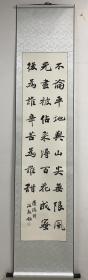 不論平地與山尖無限風
光盡被佔採得百花成蜜
後為誰辛苦為誰甜